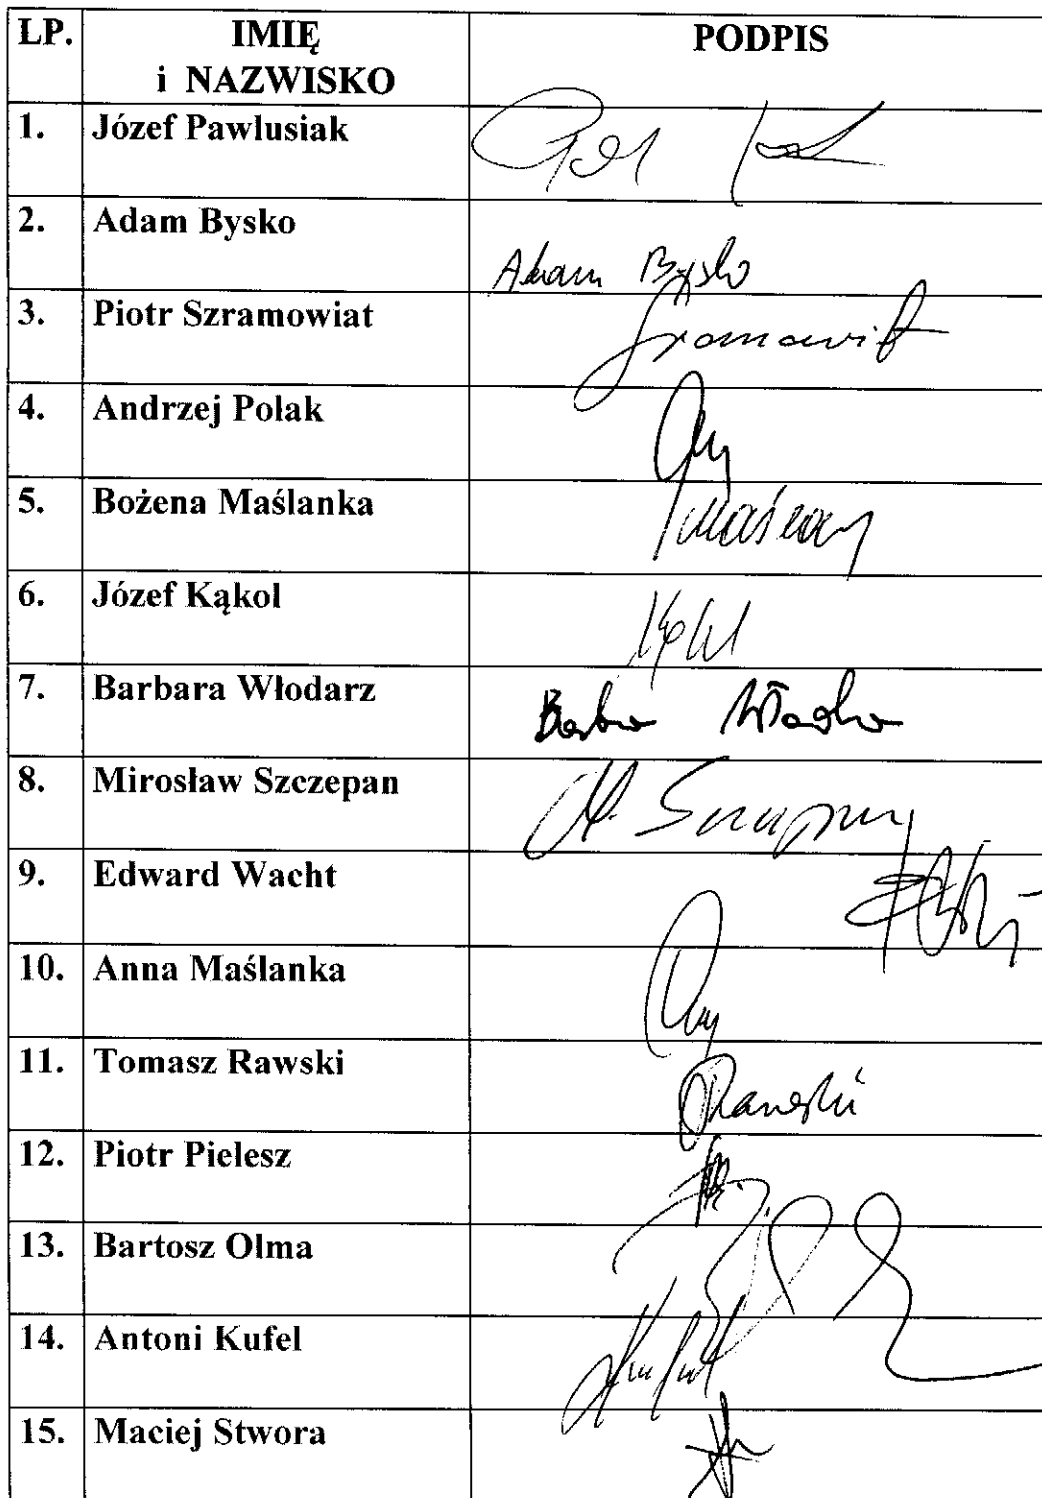 LP. IMIĘ i NAZWISKO PODPIS
1. Józef Pawlusiak
2. Adam Bysko Adam Bysko
3. Piotr Szramowiat
4. Andrzej Polak
5. Bożena Maślanka
6. Józef Kąkol
7. Barbara Włodarz
8. Mirosław Szczepan
9. Edward Wacht
10. Anna Maślanka
11. Tomasz Rawski Rawski
12. Piotr Pielesz
13. Bartosz Olma
14. Antoni Kufel
15. Maciej Stwora